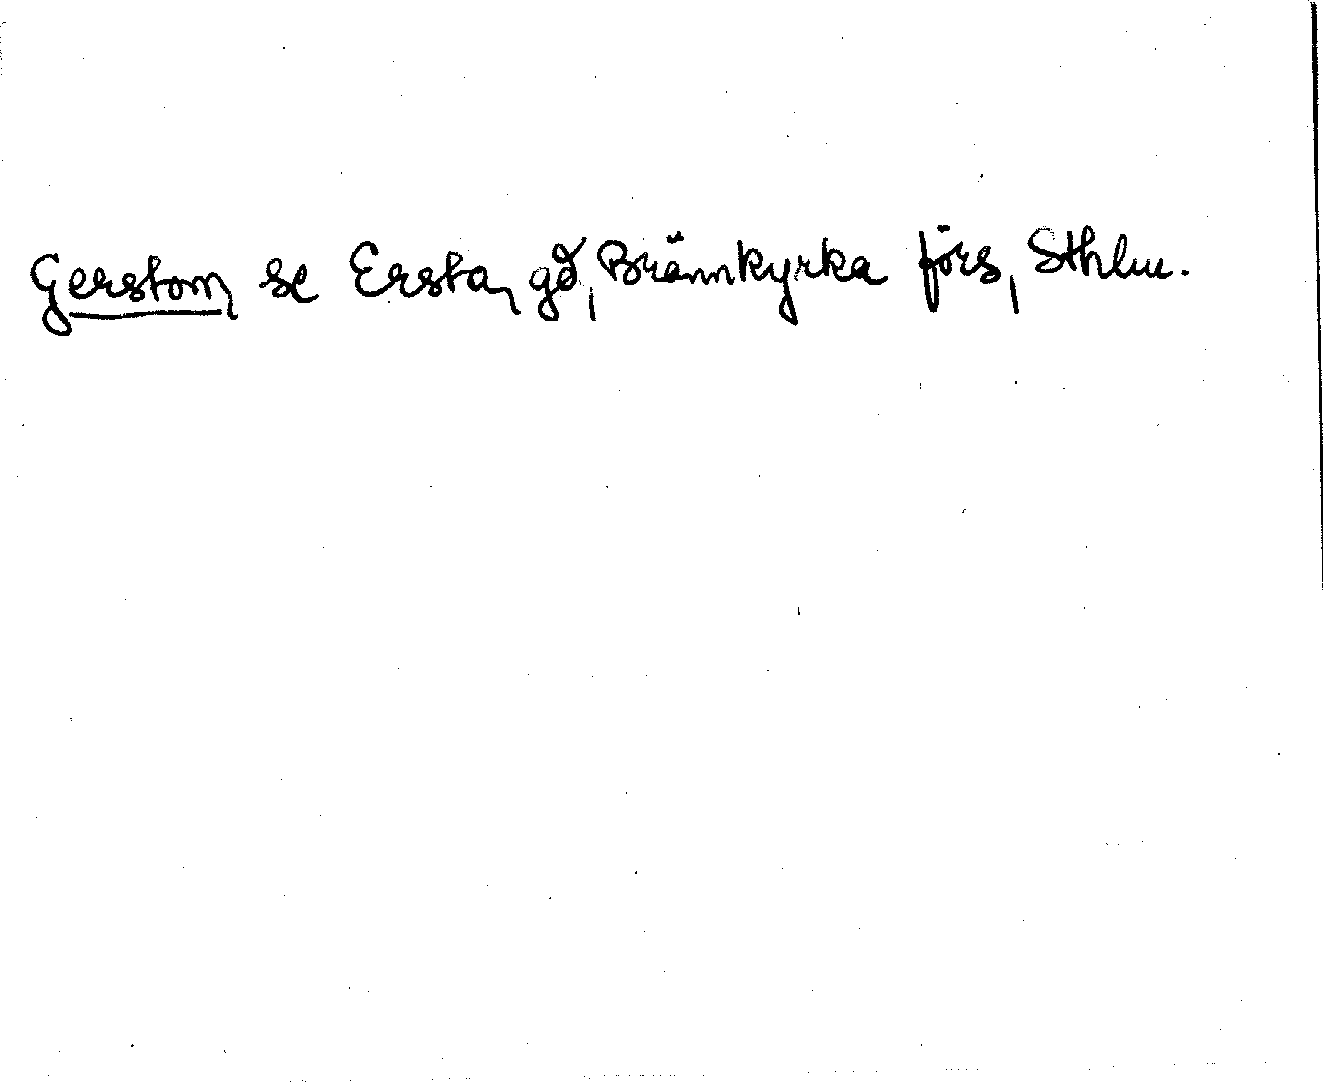 Gerstom, se Ersta, gd, Brännkyrka förs, Sthlm.